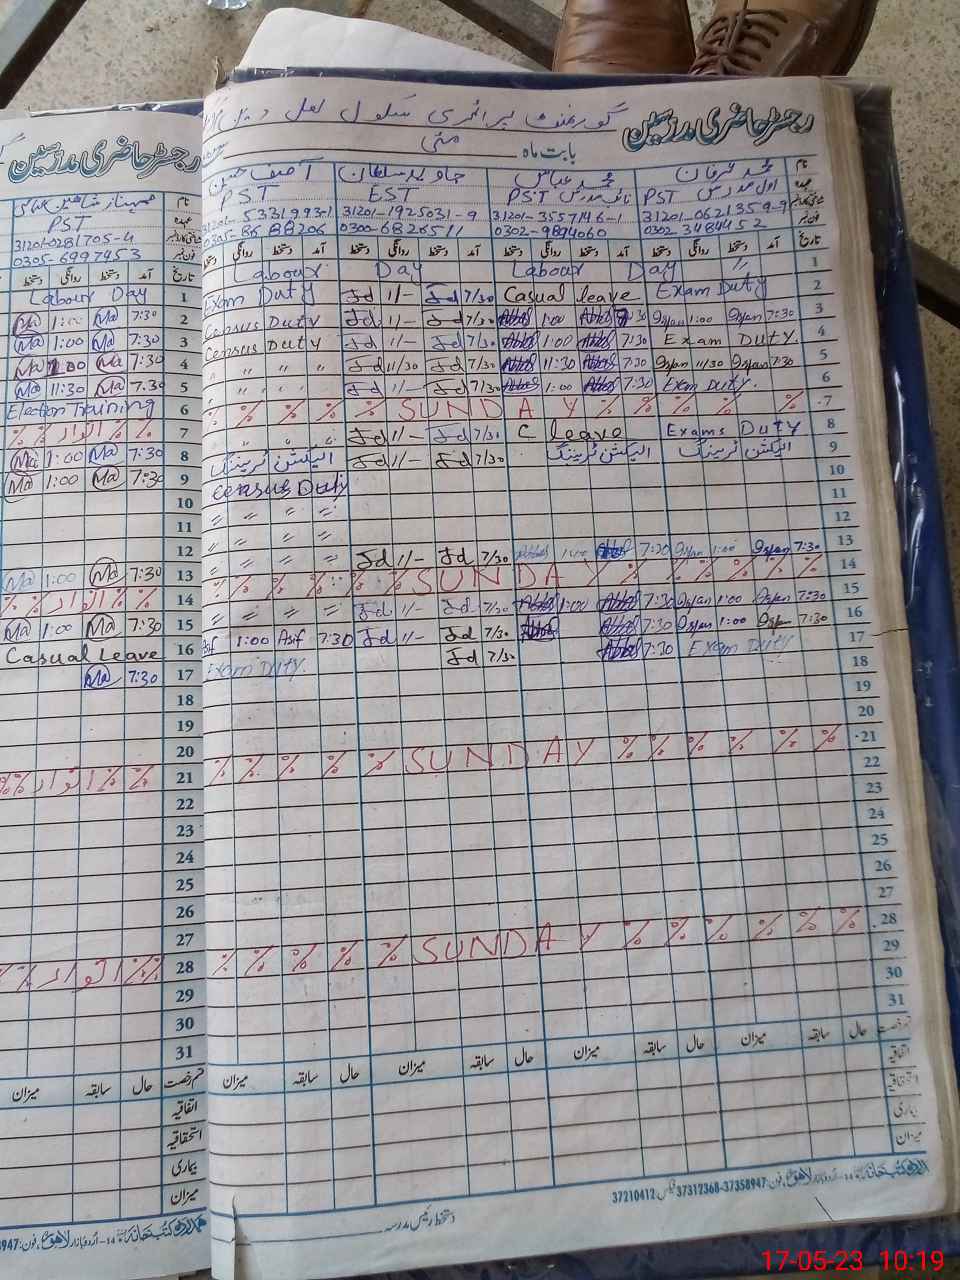 رجسٹر حاضری مدرسین
گورنمنٹ پرائمری سکول لعل
بابت ماہ مئی
نام محمد عرفان محمد عباس جاوید سلطان آصف حسین
عہدہ PST اول مدرس PST نائب مدرس EST PST
31201-0621359-9 31201-3557146-1 31201-1925031-9 31201-5331993-1
0302 3484452 0302-9894060 0300-6826511 0305-8688206
تاریخ آمد دستخط روانگی دستخط آمد دستخط روانگی دستخط آمد دستخط روانگی دستخط آمد دستخط روانگی دستخط
Labour Day Labour Day 〃 1
Exam Duty Jd 11/- Jd 7/30 Casual leave Exam Duty 2
Census Duty Jd 11/- Jd 7/30 1:00 7:30 Irfan 1:00 Irfan 7:30 3
Census Duty Jd 11/- Jd 7/30 1:00 7:30 Exam Duty. 4
〃 〃 〃 〃 Jd 11/30 Jd 7/30 11:30 7:30 Irfan 11/30 Irfan 7:30 5
〃 〃 〃 〃 Jd 11/- Jd 7/30 1:00 7:30 Exam Duty. 6
% % % % SUNDAY % % % % % 7
〃 〃 〃 〃 Jd 11/- Jd 7/30 C leave Exams Duty 8
الیکشن ٹریننگ Jd 11/- Jd 7/30 الیکشن ٹریننگ الیکشن ٹریننگ 9
Census Duty 10
〃 〃 〃 〃 11
〃 〃 〃 〃 12
〃 〃 〃 〃 Jd 11/- Jd 7/30 1:00 7:30 Irfan 1:00 Irfan 7:30 13
% % % % % % SUNDAY % % % % % % 14
〃 〃 〃 〃 Jd 11/- Jd 7/30 1:00 7:30 Irfan 1:00 Irfan 7:30 15
Asif 1:00 Asif 7:30 Jd 11/- Jd 7/30 7:30 Irfan 1:00 Irfan 7:30 16
Exam Duty. Jd 7/30 7:30 Exam Duty 17
18
19
20
% % % % SUNDAY % % % % % 21
22
23
24
25
26
27
% % % % SUNDAY % % % % % % 28
29
30
31
قسم رخصت حال سابقہ میزان حال سابقہ میزان حال سابقہ میزان حال سابقہ میزان
اتفاقیہ
استحقاقیہ
بیماری
میزان
37210412 فیکس 37312368-37358947 فون: اردو بازار لاہور
دستخط رئیس مدرسہ
رجسٹر حاضری مدرسین
نام شہناز
عہدہ PST
31201-0281705-4
0305-6997953
تاریخ آمد دستخط روانگی دستخط
Labour Day 1
Ma 1:00 Ma 7:30 2
Ma 1:00 Ma 7:30 3
Ma 1:00 Ma 7:30 4
Ma 11:30 Ma 7:30 5
Election Training 6
% % اتوار % % 7
Ma 1:00 Ma 7:30 8
Ma 1:00 Ma 7:30 9
10
11
12
Ma 1:00 Ma 7:30 13
% % اتوار % % 14
Ma 1:00 Ma 7:30 15
Casual Leave 16
Ma 7:30 17
18
19
20
% % اتوار % % 21
22
23
24
25
26
27
% % اتوار % % 28
29
30
31
قسم رخصت حال سابقہ میزان
اتفاقیہ
استحقاقیہ
بیماری
میزان
ہمدرد کتب خانہ 14-اردو بازار لاہور، فون:
17-05-23 10:19